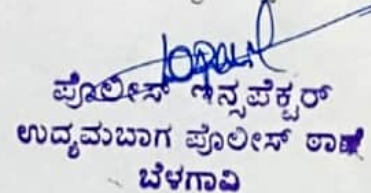 ಪೊಲೀಸ್ ಇನ್ಸಪೆಕ್ಟರ್
ಉದ್ಯಮಬಾಗ ಪೊಲೀಸ್ ಠಾಣೆ
ಬೆಳಗಾವಿ